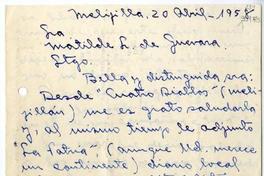 Melipilla, 20 Abril-1954
Sa
Matilde L. de Guevara
Stgo.
Bella y distinguida sra:
Desde "Cuatro Diablos" (meji-
llón) me es grato saludarla
y, al mismo tiempo le adjunto
"La Patria", (aunque Ud. merece
un continente) diario local